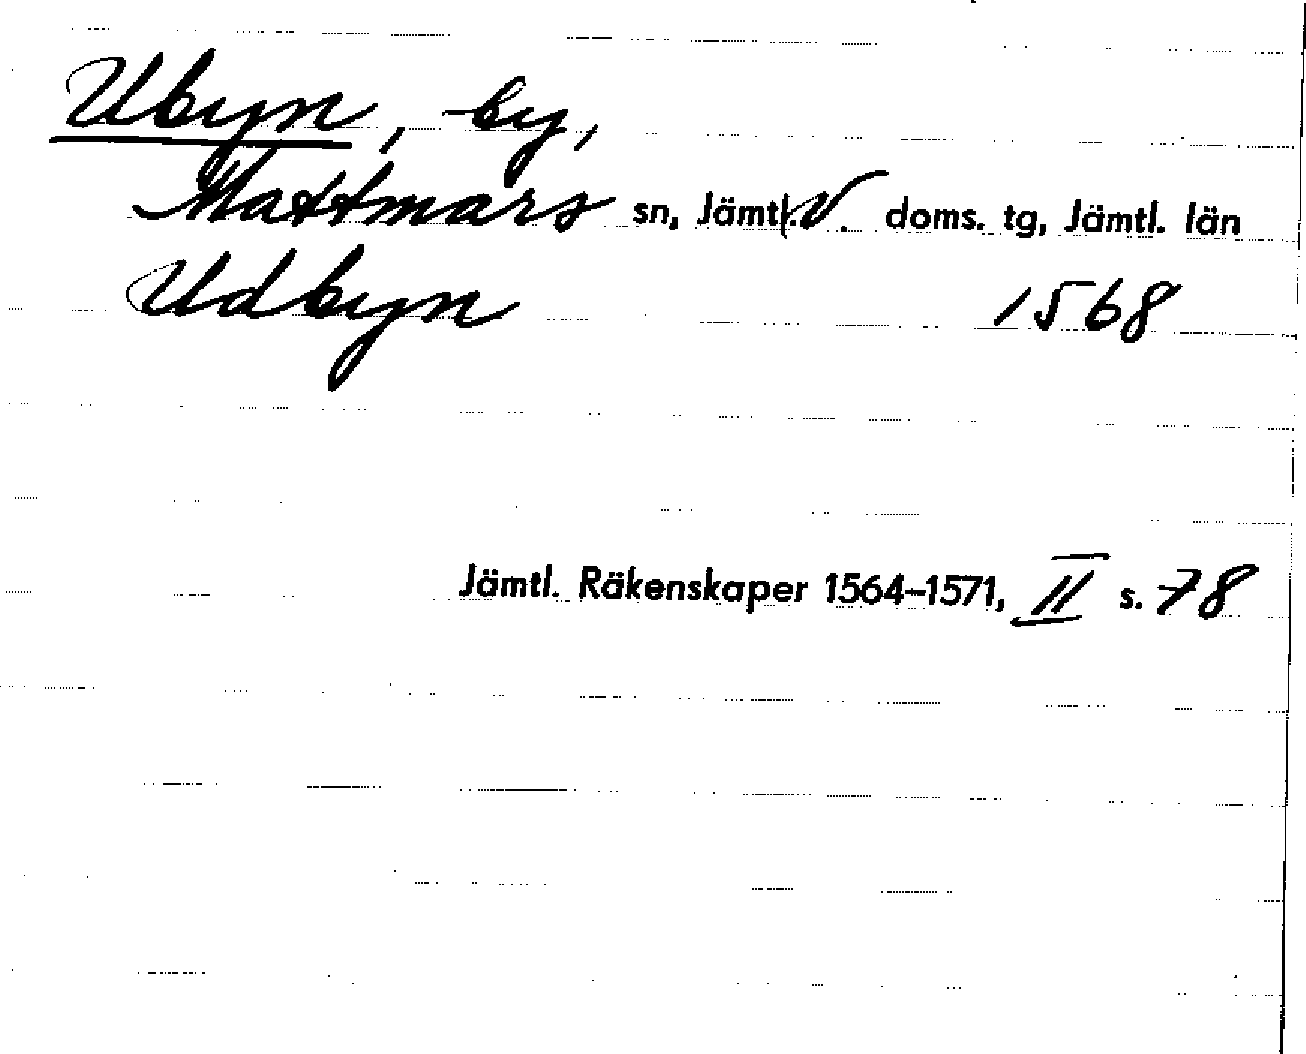 Ubyn, by,
Mattmars sn, Jämtl. V. doms. tg, Jämtl. län
Udbyn 1568
Jämtl. Räkenskaper 1564–1571, II s. 78